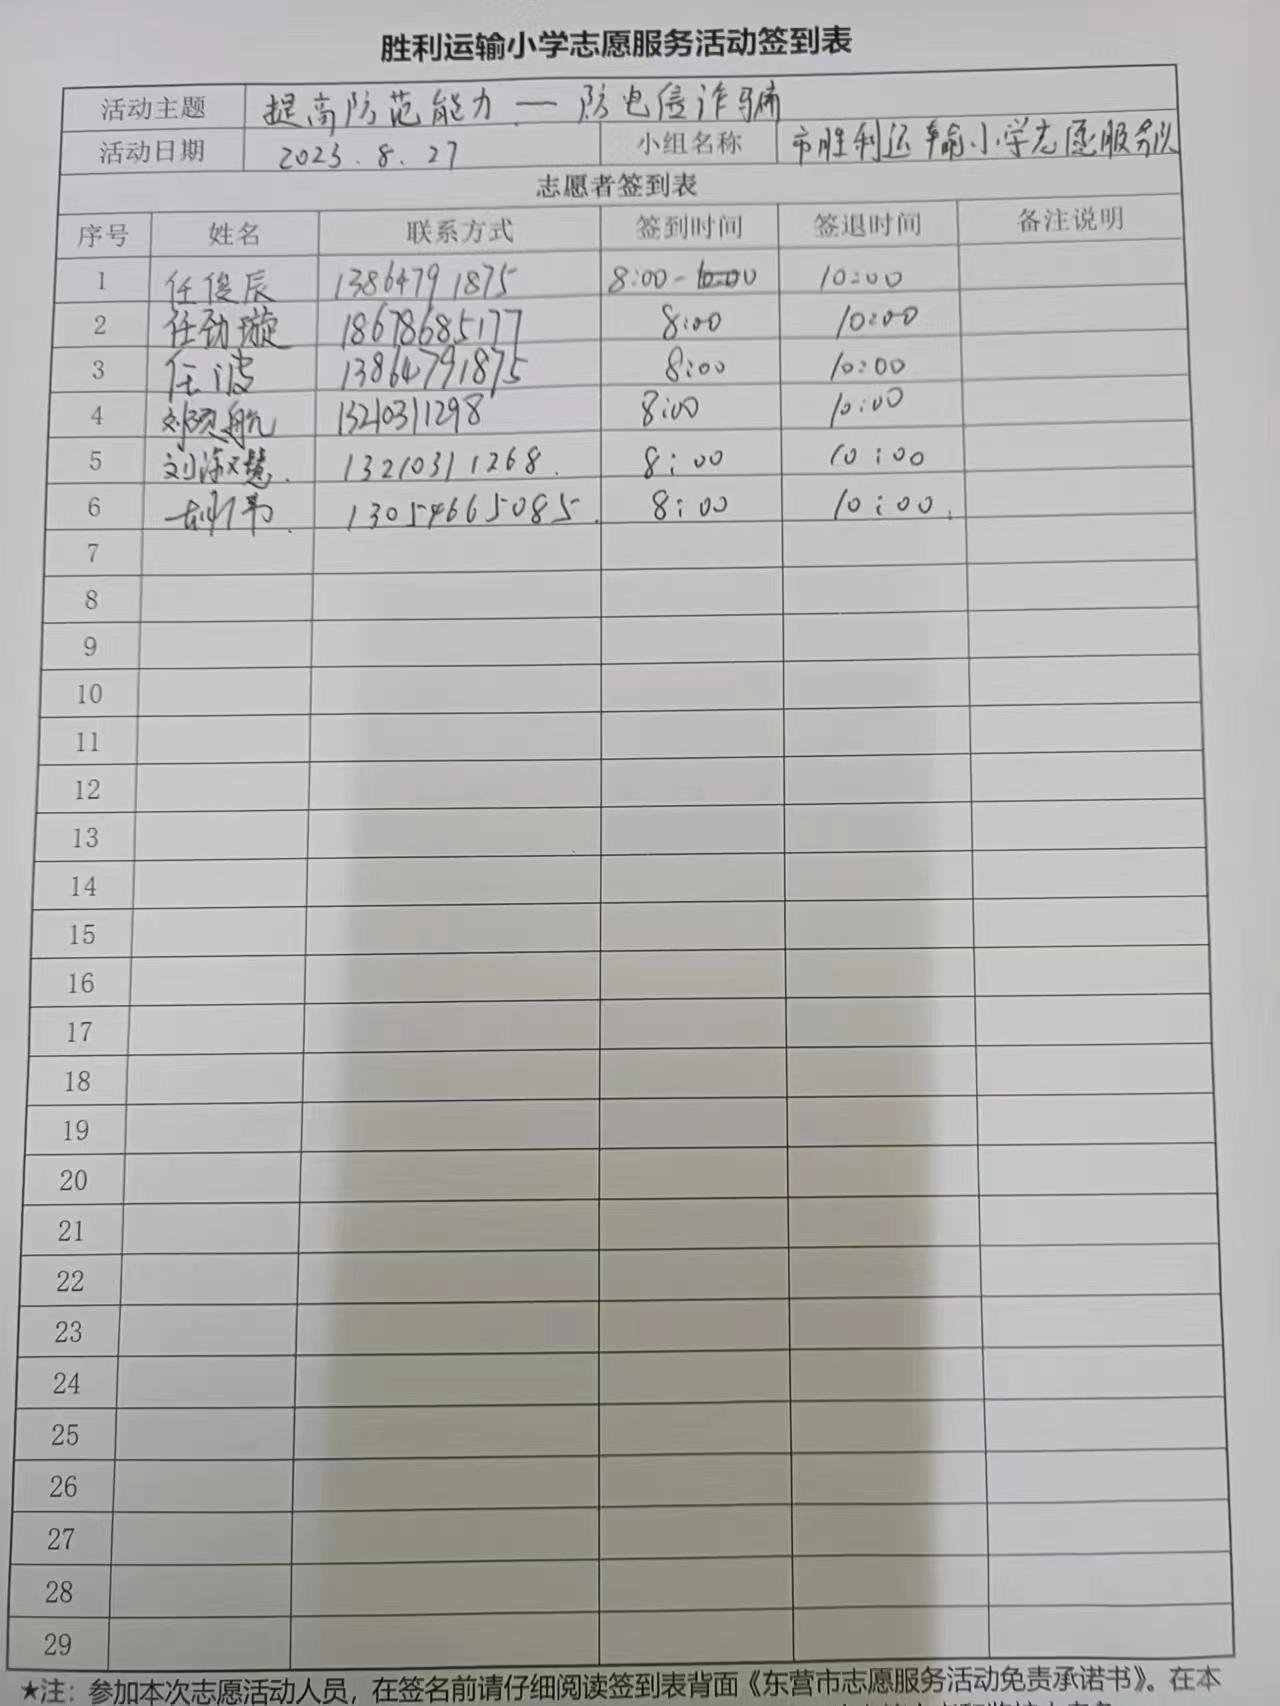 胜利运输小学志愿服务活动签到表
活动主题 提高防范能力 — 防电信诈骗
活动日期 2023.8.27 小组名称 市胜利运输小学志愿服务队
志愿者签到表
序号 姓名 联系方式 签到时间 签退时间 备注说明
1 任俊辰 13864791875 8:00-10:00 10:00
2 任劲璇 18678685177 8:00 10:00
3 任波 13864791875 8:00 10:00
4 刘 航 13210311298 8:00 10:00
5 刘淑慧. 13210311268. 8:00 10:00
6 13054665085. 8:00 10:00.
7
8
9
10
11
12
13
14
15
16
17
18
19
20
21
22
23
24
25
26
27
28
29
★注：参加本次志愿活动人员，在签名前请仔细阅读签到表背面《东营市志愿服务活动免责承诺书》。在本